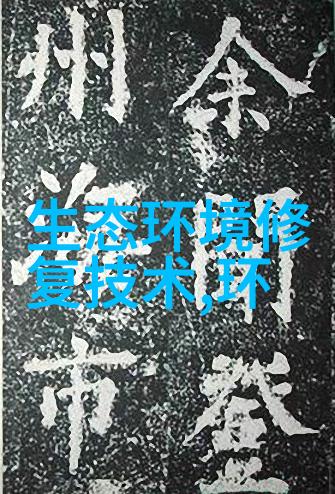 余聞登
州海市
生态环境修
复技术,环